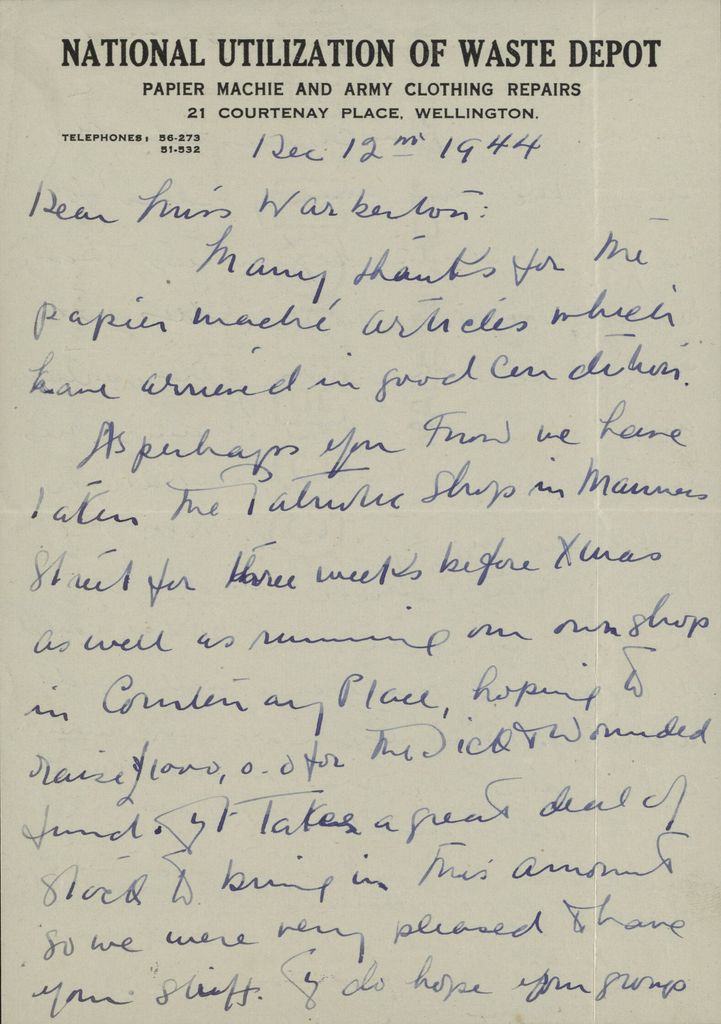 NATIONAL UTILIZATION OF WASTE DEPOT
PAPIER MACHIE AND ARMY CLOTHING REPAIRS
21 COURTENAY PLACE, WELLINGTON.
TELEPHONES: 56-273
51-532
Dec 12nd 1944
Dear Miss Warberton:
Many thanks for the
papier maché articles which
have arrived in good condition.
As perhaps you know we have
taken the Patriotic Shop in Manners
Street for three weeks before Xmas
as well as running our own shop
in Courtenay Place, hoping to
raise £1000,0.0 for the Sick & Wounded
fund. It takes a great deal of
stock to bring in this amount
so we were very pleased to have
your stuff. I do hope your group